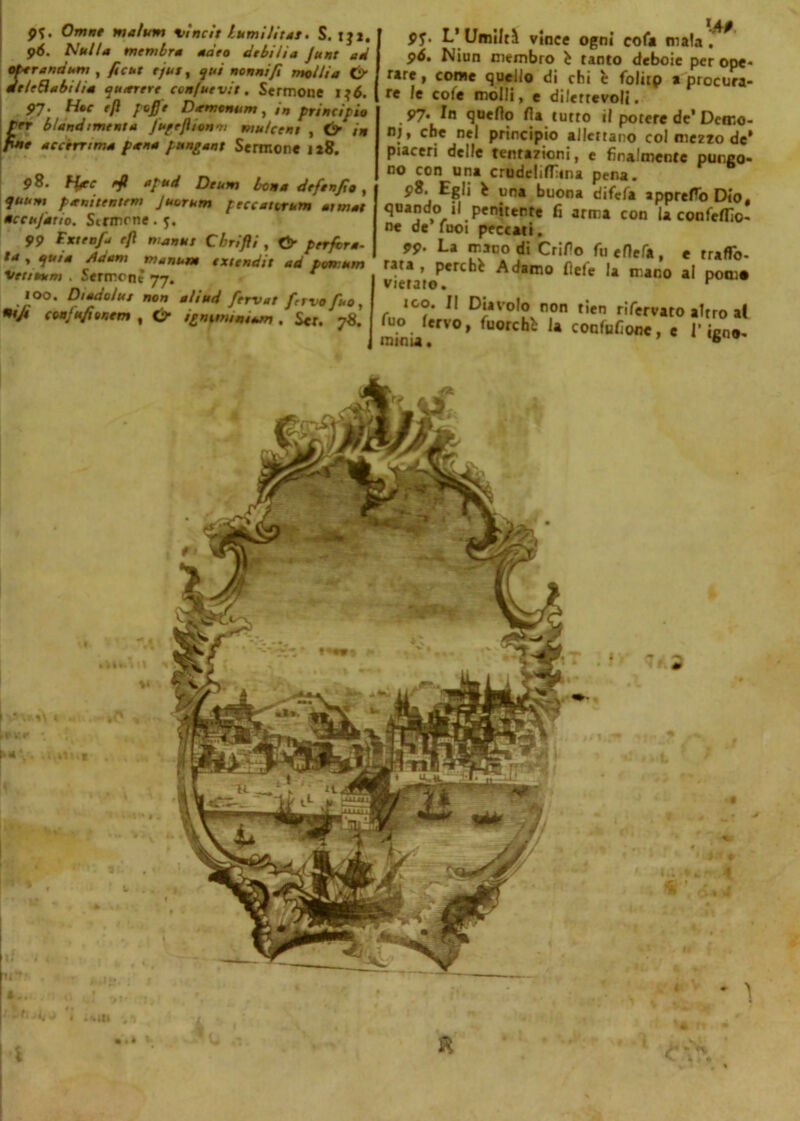 95. Omne malum vincit humilitas. S. 132.
96. Nulla membra adeo debilia ſunt ad
operandum, ſicut ejus, qui nonniſi mollia &
delectabilia quærere conſuevit. Sermone 136.
97. Hoc eſt poſſe Dæmonum, in principio
per blandimenta ſugeſtionum mulcent, & in
fine accerrima pæna pungant Sermone 128.
98. Hæc eſt apud Deum bona defenſio,
quum pænitentem ſuorum peccatorum armat
accuſatio. Sermone. 5.
99 Extenſa eſt manus Chriſti, & perfora-
ta, quia Adam manum extendit ad pomum
vetitum. Sermone 77.
100. Diadolus non aliud ſervat ſervo ſuo,
niſi confuſionem, & ignominiam. Ser. 78.
95. L'Umiltà vince ogni coſa mala.
96. Niun membro è tanto debole per ope-
rare, come quello di chi è ſolito a procura-
re le coſe molli, e dilettevoli.
97. In queſto ſta tutto il potere de' Demo-
nj, che nel principio allettano col mezzo de'
piaceri delle tentazioni, e finalmente pungo-
no con una crudeliſſima pena.
98. Egli è una buona difeſa appreſſo Dio,
quando il penitente ſi arma con la confeſſio-
ne de' ſuoi peccati.
99. La mano di Criſto fu eſteſa, e traffo-
rata, perchè Adamo ſteſe la mano al pomo
vietato.
100. Il Diavolo non tien riſervato altro al
ſuo ſervo, fuorchè la confuſione, e l'igno-
minia.
R